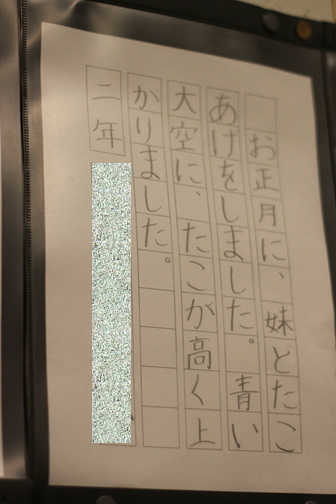 お正月に、妹とたこ
あげをしました。青い
大空に、たこが高く上
かりました。
二年